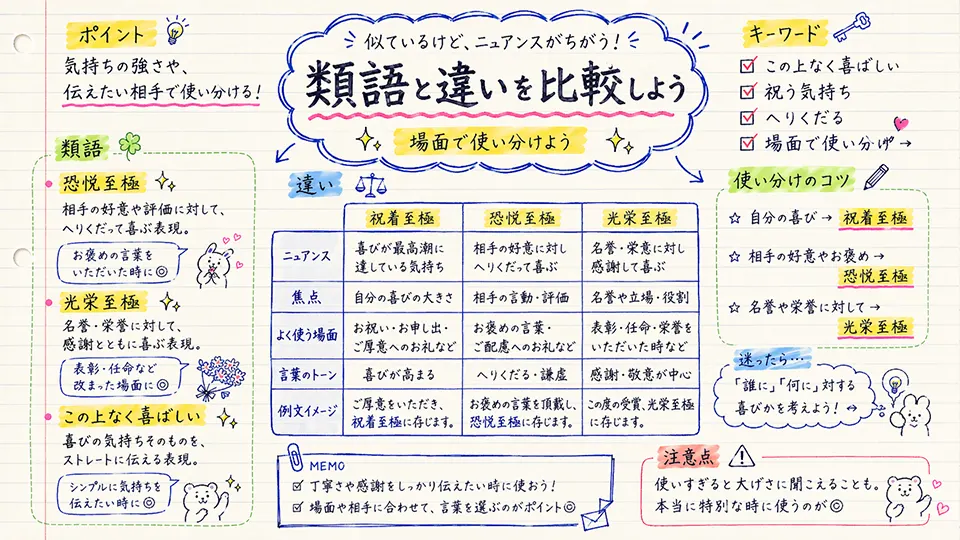 ポイント
気持ちの強さや、
伝えたい相手で使い分ける!
似ているけど、ニュアンスがちがう!
類語と違いを比較しよう
場面で使い分けよう
キーワード
この上なく喜ばしい
祝う気持ち
へりくだる
場面で使い分け →
類語
恐悦至極
相手の好意や評価に対して、
へりくだって喜ぶ表現。
お褒めの言葉を
いただいた時に◎
光栄至極
名誉・栄誉に対して、
感謝とともに喜ぶ表現。
表彰・任命など
改まった場面に◎
この上なく喜ばしい
喜びの気持ちそのものを、
ストレートに伝える表現。
シンプルに気持ちを
伝えたい時に◎
違い
祝着至極 恐悦至極 光栄至極
ニュアンス
喜びが最高潮に
達している気持ち
相手の好意に対し
へりくだって喜ぶ
名誉・栄意に対し
感謝して喜ぶ
焦点 自分の喜びの大きさ 相手の言動・評価 名誉や立場・役割
よく使う場面
お祝い・お申し出・
ご厚意へのお礼など
お褒めの言葉・
ご配慮へのお礼など
表彰・任命・栄誉を
いただいた時など
言葉のトーン 喜びが高まる へりくだる・謙虚 感謝・敬意が中心
例文イメージ
ご厚意をいただき、
祝着至極に存じます。
お褒めの言葉を頂戴し、
恐悦至極に存じます。
この度の受賞、光栄至極
に存じます。
MEMO
丁寧さや感謝をしっかり伝えたい時に使おう!
場面や相手に合わせて、言葉を選ぶのがポイント◎
使い分けのコツ
☆ 自分の喜び → 祝着至極
☆ 相手の好意やお褒め →
恐悦至極
☆ 名誉や栄誉に対して →
光栄至極
迷ったら…
「誰に」「何に」対する
喜びかを考えよう!
注意点
使いすぎると大げさに聞こえることも。
本当に特別な時に使うのが◎